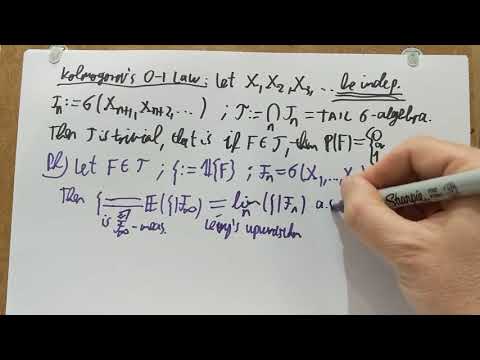 Kolmogorov's 0-1 Law: Let X₁, X₂, X₃, ... be indep.
𝒯ₙ := σ(Xₙ₊₁, Xₙ₊₂, ...) ; 𝒯 := ⋂ₙ 𝒯ₙ = TAIL σ-algebra.
Then 𝒯 is trivial, that is if F ∈ 𝒯, then P(F) = { 0 or 1
Pf) Let F ∈ 𝒯 ; ξ := 𝟙{F} ; ℱₙ = σ(X₁, ... X
Then ξ = 𝔼(ξ|ℱ∞) = limₙ (ξ|ℱₙ) a.s
is ℱ∞-meas. Levy's upward thm
Sharpie